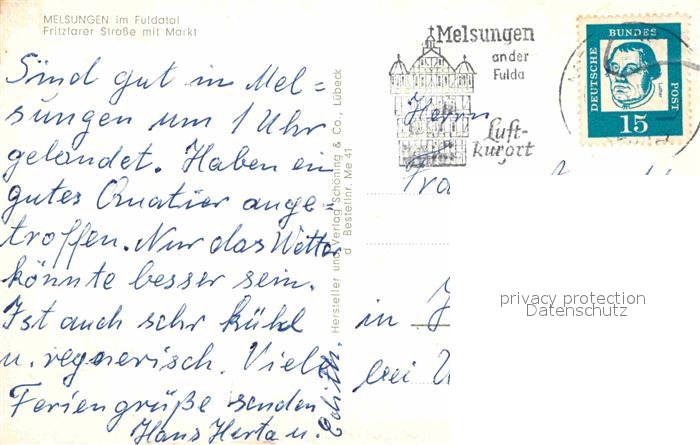 MELSUNGEN im Fuldatal
Fritzlarer Straße mit Markt
Sind gut in Mel=
sungen um 1 Uhr
gelandet. Haben ein
gutes Quatier ange=
troffen. Nur das Wetter
könnte besser sein.
Ist auch sehr kühl
u. regnerisch. Viele
Feriengrüße senden
Hans Herta u.
Edith.
Hersteller und Verlag Schöning & Co., Lübeck
Bestellnr. Me 41
Melsungen
an der
Fulda
Luft-
kurort
DEUTSCHE BUNDESPOST
Luther
15
Herrn
in
bei
privacy protection
Datenschutz